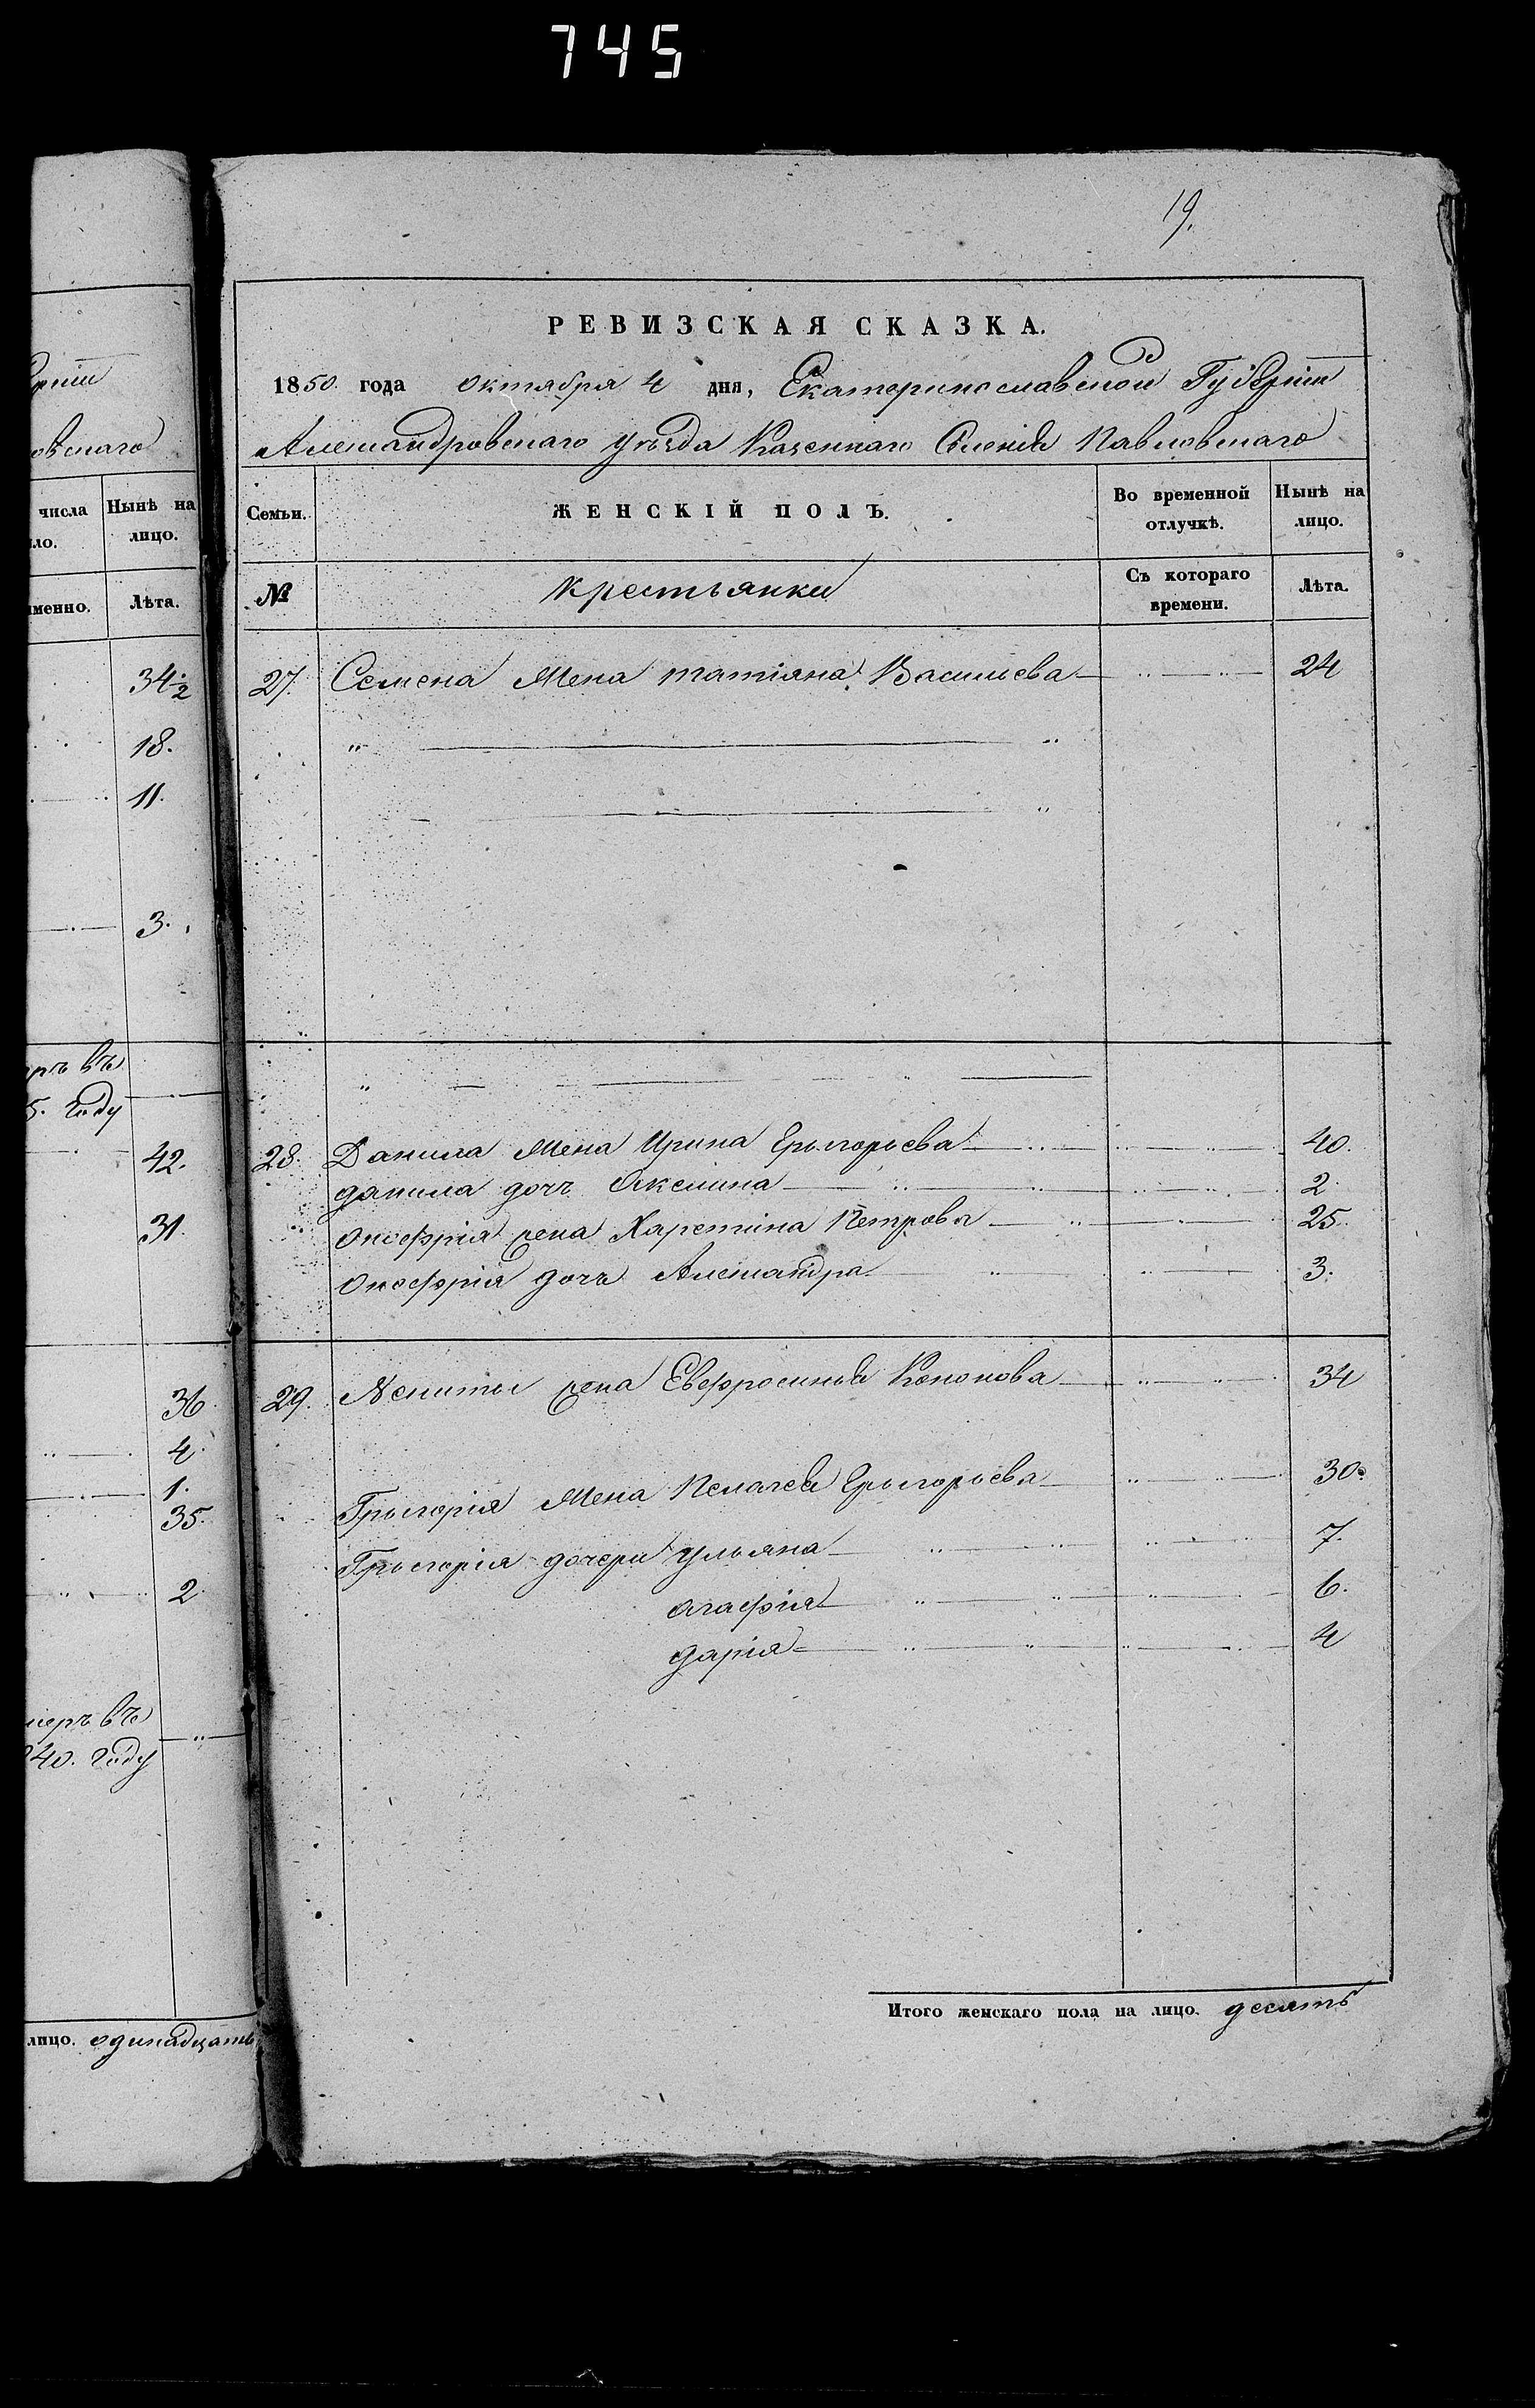 745
19.
РЕВИЗСКАЯ СКАЗКА.
1850. года октября 4 дня, Екатеринославской Губерніи
Александровскаго уѣзда Казеннаго Селенія Павловскаго
Семьи. ЖЕНСКІЙ ПОЛЪ. Во временной отлучкѣ. Нынѣ на лицо.
№ Крестьянки Съ котораго времени. Лѣта.
27. Семена Жена татіяна Васильева 24
28. Данила Жена Ирина Григорьева 40.
данила дочь Аксиниа 2.
Онофрія жена Харетина Петрова 25.
Онофрія дочь Александра 3.
29. Никиты жена Евфросинья Кононова 34
Григорія Жена Пелагея Григорьева 30.
Григорія дочери ульяна 7.
агафія 6.
дарія 4
Итого женскаго пола на лицо. десять
рніи
овскаго
числа Нынѣ на
ло. лицо.
именно. Лѣта.
34½
18.
11.
3.
ръ въ
5. году
42.
31.
36.
4.
1.
35.
2.
меръ въ
40. году
лицо. одинадцать